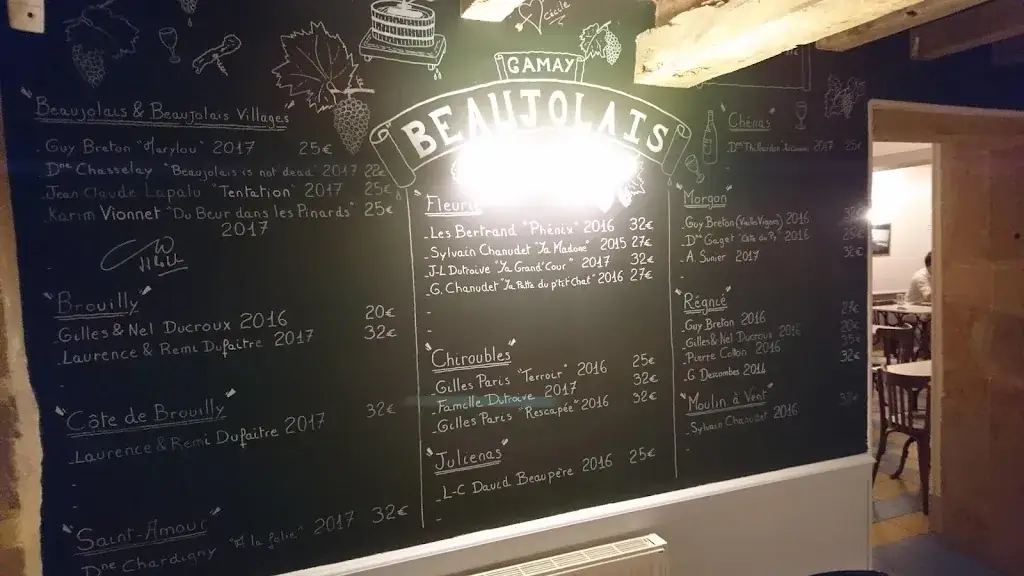 Cécile
GAMAY
BEAUJOLAIS
"Beaujolais & Beaujolais Villages"
. Guy Breton "Marylou" 2017 25€
. Dne Chasselay "Beaujolais is not dead" 2017 22€
. Jean Claude Lapalu "Tentation" 2017 25€
. Karim Vionnet "Du Beur dans les Pinards" 25€
2017
-
"Brouilly"
. Gilles & Nel Ducroux 2016 20€
. Laurence & Remi Dufaitre 2017 32€
-
"Côte de Brouilly"
. Laurence & Remi Dufaitre 2017 32€
-
-
"Saint-Amour"
. Dne Chardigny "A la folie" 2017 32€
"Fleurie
. Les Bertrand "Phénix" 2016 32€
. Sylvain Chanudet "La Madone" 2015 27€
. J-L Dutraive "La Grand'Cour" 2017 32€
. G. Chanudet "La Patte du p'tit Chat" 2016 27€
-
-
"Chiroubles"
. Gilles Paris "Terroir" 2016 25€
. Famille Dutraive 2017 32€
. Gilles Paris "Rescapée" 2016 32€
"Julienas"
. L-C David Beaupère 2016 25€
-
-
"Chénas"
. Dne 2017 25€
"Morgon"
. Guy Breton (Vieilles Vignes) 2016
. Dne Gaget Côte du Py 2016
. A. Sunier 2017
-
"Régnié"
. Guy Breton 2016
. Gilles & Nel Ducroux 2016
. Pierre Cotton 2016
. G Descombes 2016 32€
"Moulin à Vent"
. Sylvain Chanudet 2016
-